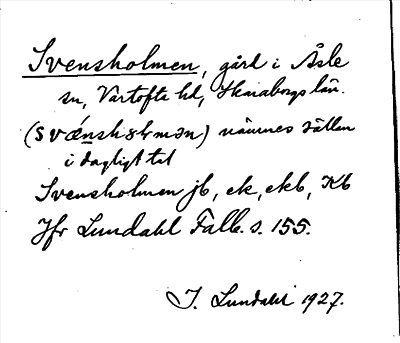 Svensholmen, gård i Åsle
sn, Vartofta hd, Skaraborgs län.
nämnes sällan
i dagligt tal
Svensholmen jb, ek, ekb, Kb
Jfr Lundahl Falb. s. 155.
I. Lundahl 1927.